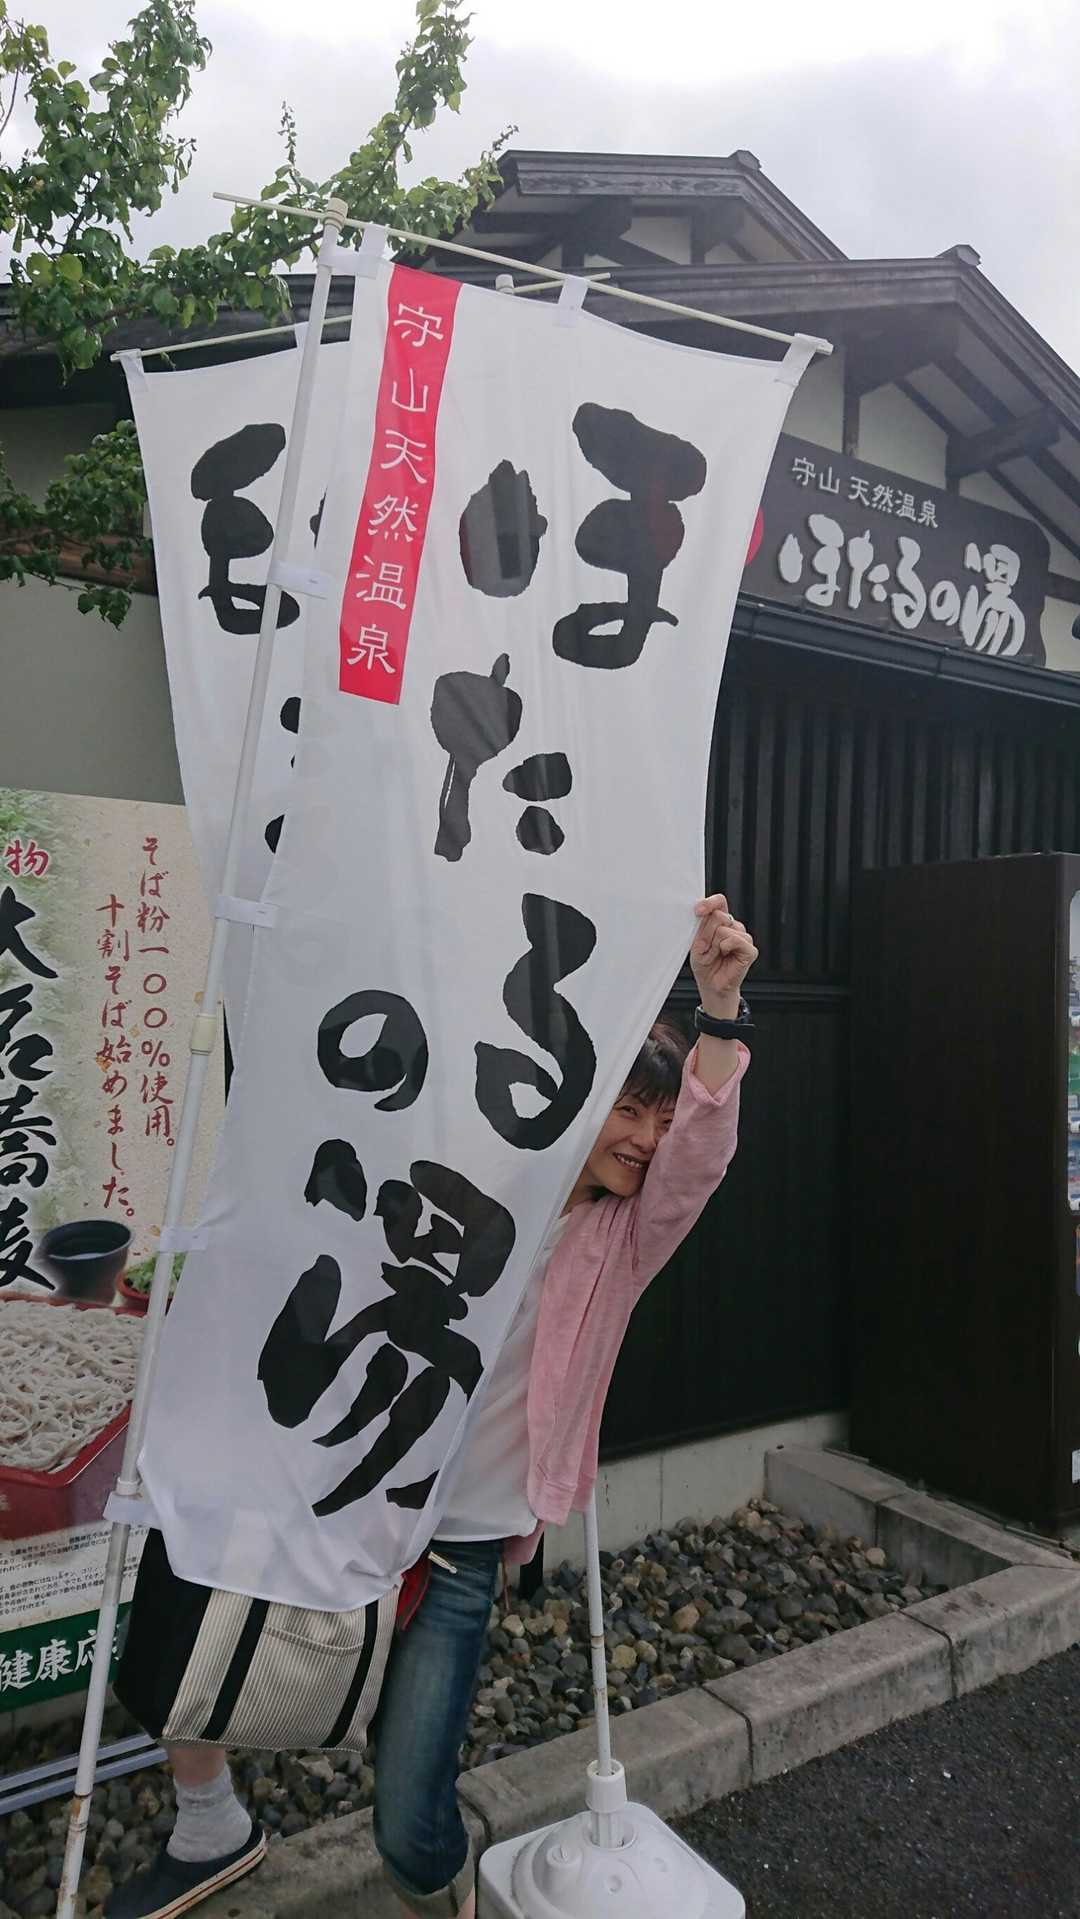 守山天然温泉
ほたるの湯
守山 天然温泉
ほたるの湯
物
そば粉一〇〇%使用。
十割そば始めました。
大名蕎麦
健康応